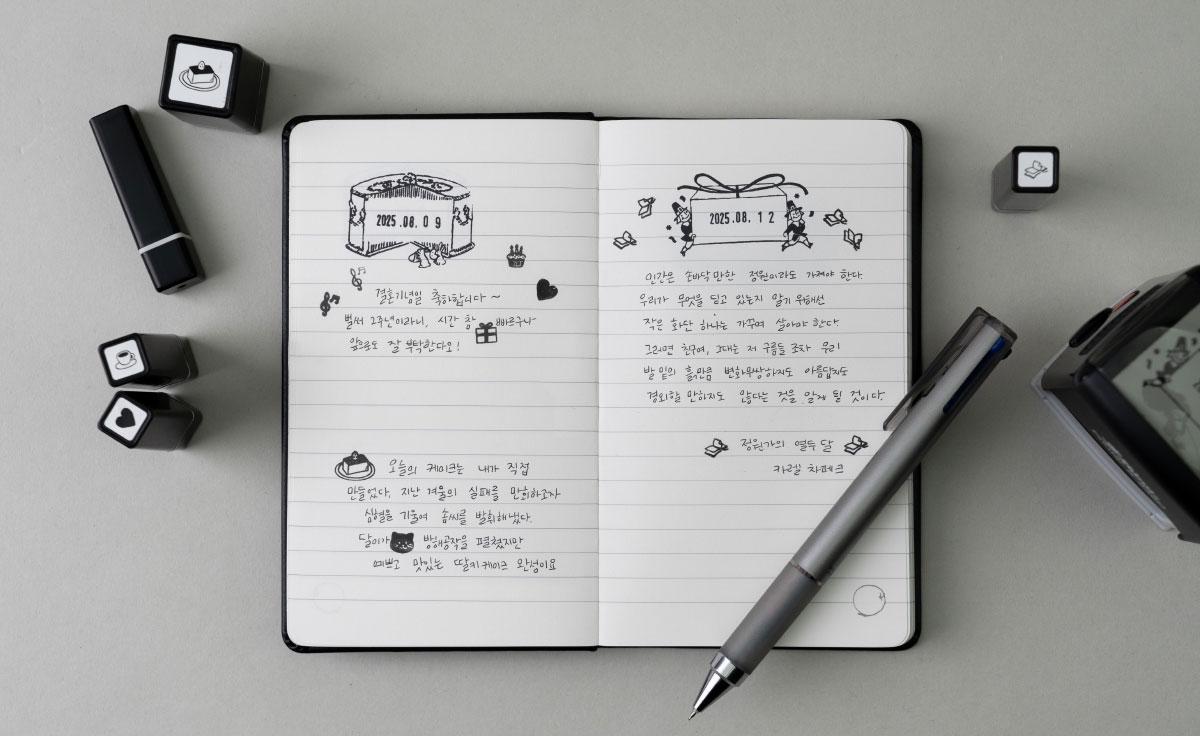 2025.08.09
결혼기념일 축하합니다~
벌써 2주년이라니, 시간 참 빠르구나
앞으로도 잘 부탁한다오!
오늘의 케이크는 내가 직접
만들었다. 지난 겨울의 실패를 만회하고자
심혈을 기울여 솜씨를 발휘해냈다.
달이가 방해공작을 펼쳤지만
예쁘고 맛있는 딸기케이크 완성이요
2025.08.12
인간은 손바닥만한 정원이라도 가져야 한다.
우리가 무엇을 딛고 있는지 알기 위해선
작은 화단 하나는 가꾸며 살아야 한다.
그러면 친구여, 그대는 저 구름들 조차 우리
발 밑의 흙만큼 변화무쌍하지도 아름답지도
경외할 만하지도 않다는 것을 알게 될 것이다.
정원가의 열두 달
카렐 차페크